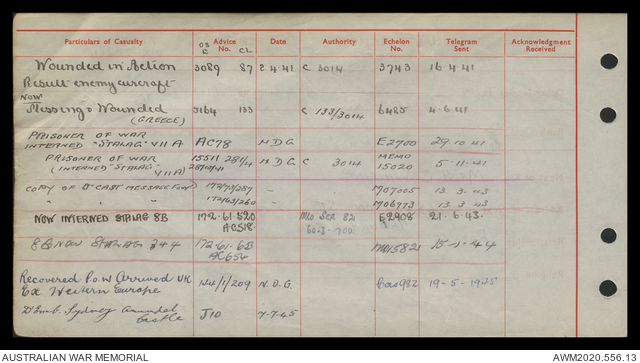 Particulars of Casualty Advice No. Date Authority Echelon No. Telegram Sent Acknowledgment Received
Wounded in Action 3089 87 2.4.41 C 3014 3743 16.4.41
Result enemy aircraft
NOW
Missing & Wounded 5164 133 C 133/3014 6485 4.6.41
(GREECE)
PRISONER OF WAR
INTERNED "STALAG" VII A AC78 N.D.G. E2700 29.10.41
PRISONER OF WAR 15511 281/4 N.D.G. C 3014 MEMO
(INTERNED "STALAG" VII A) 15020 5.11.41
COPY OF B'CAST MESSAGE FORW 172/73/257 - - M07005 13.3.43
" " 172/63/260 M06973 13.3.43
NOW INTERNED STALAG 8B 172.61.520 E2908 21.6.43.
AC518.
8B NOW STALAG 344 172.61.6B 15.1.44
AC654
Recovered P.o.W Arrived UK
Ex Western Europe 144/1/209 N.D.G. Cas982 19-5-1945
D'emb. Sydney Arundel
Castle J10 7-7-45
AUSTRALIAN WAR MEMORIAL AWM2020.556.13